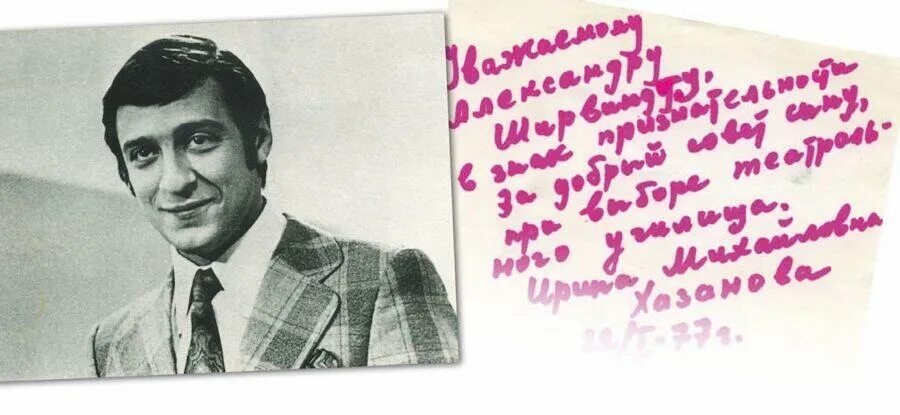 Уважаемому
Александру
Ширвиндту,
в знак признательности
за добрый совет сыну,
при выборе театраль-
ного училища.
Ирина Михайловна
Хазанова
22/I-77г.